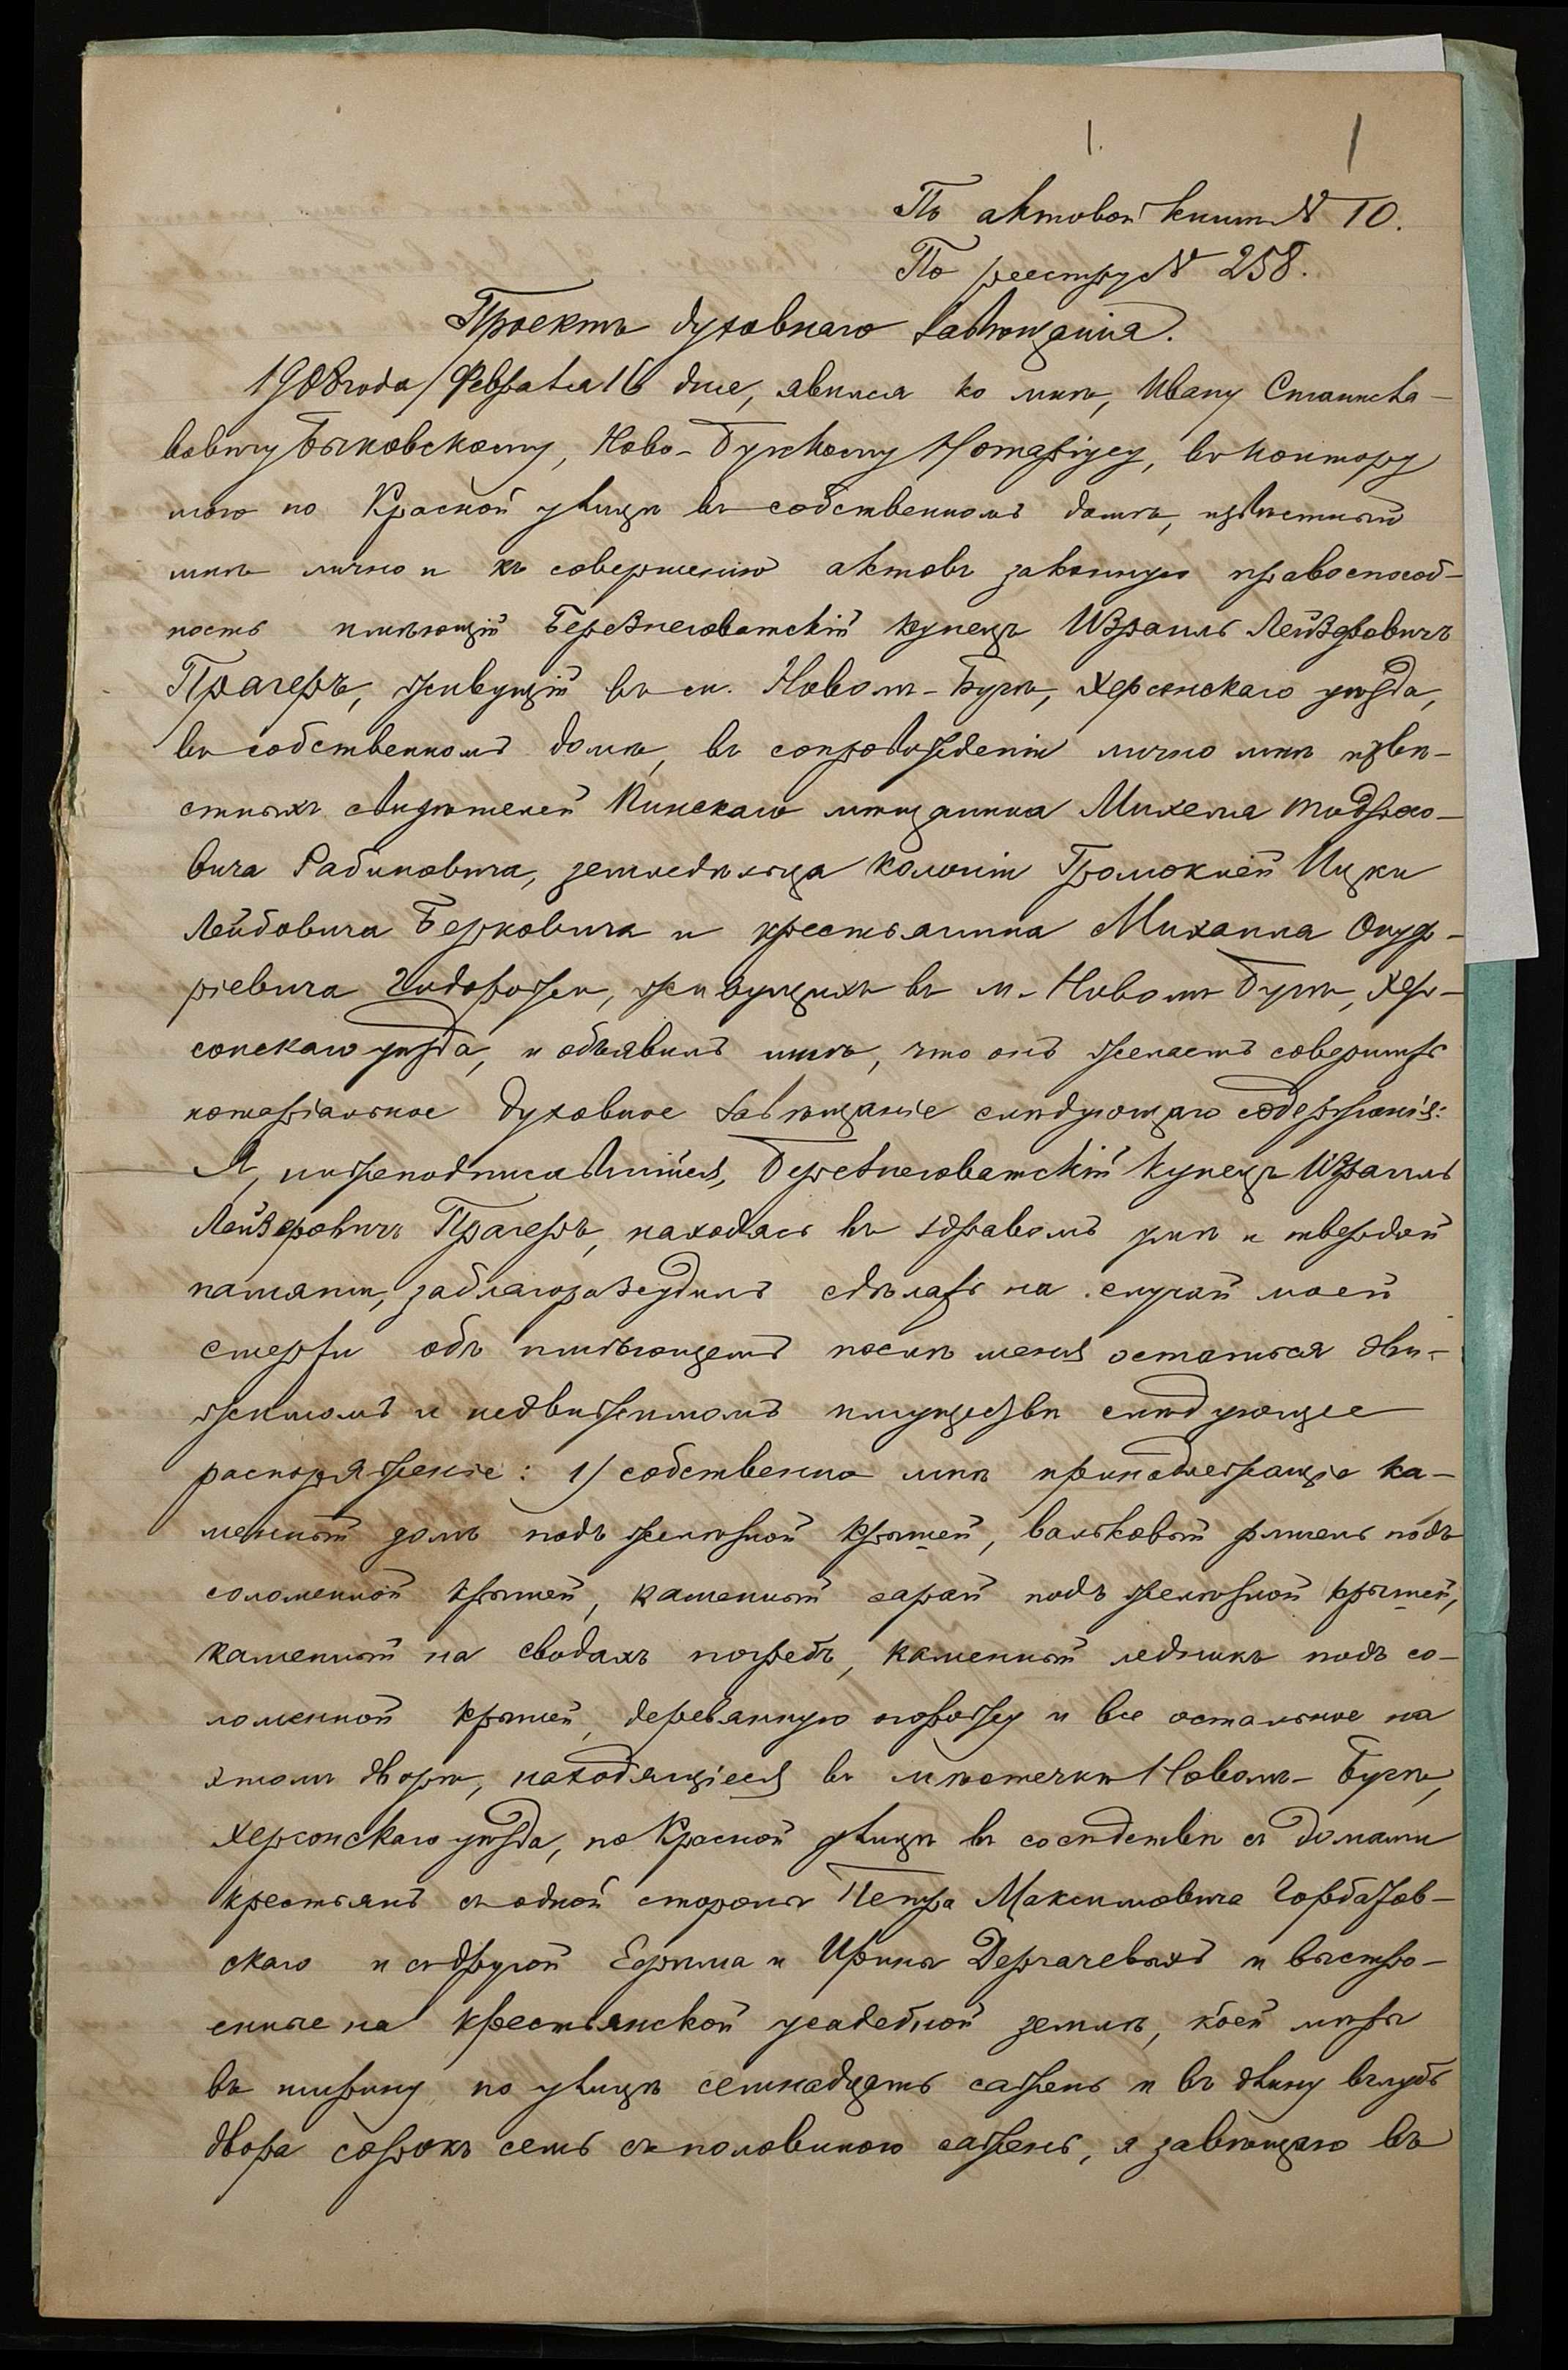 1. 1
По актовой книгѣ № 10.
По реестру № 258.
Проектъ духовнаго завѣщанія.
1908 года, Февраля 16 дня, явился ко мнѣ, Ивану Станисла-
вовичу Быковскому, Ново-Бугскому Нотаріусу, въ контору
мою по Красной улицѣ въ собственномъ домѣ, извѣстный
мнѣ лично и къ совершенію актовъ законную правоспособ-
ность имѣющій Березнеговатскій купецъ Израиль Лейзеровичъ
Прагеръ, живущій въ м. Новомъ-Бугѣ, Херсонскаго уѣзда,
въ собственномъ домѣ, въ сопровожденіи лично мнѣ извѣ-
стныхъ свидѣтелей Пинскаго мѣщанина Михеля
вича Рабиновича, земледѣльца колоніи Громоклей Ицки
Лейбовича Берковича и крестьянина Михаила Онуф-
ріевича живущихъ въ м. Новомъ Бугѣ, Хер-
сонскаго уѣзда, и объявилъ мнѣ, что онъ желаетъ совершить
нотаріальное духовное завѣщаніе слѣдующаго содержанія:
Я, нижеподписавшійся, Березнеговатскій купецъ Израиль
Лейзеровичъ Прагеръ, находясь въ здравомъ умѣ и твердой
памяти, заблагоразсудилъ сдѣлать на случай моей
смерти объ имѣющемъ послѣ меня остаться дви-
жимомъ и недвижимомъ имуществѣ слѣдующее
распоряженіе: 1) собственно мнѣ принадлежащіе ка-
менный домъ подъ желѣзной крышей, вальковый флигель подъ
соломенной крышей, каменный сарай подъ желѣзной крышей,
каменный на сводахъ погребъ, каменный ледникъ подъ со-
ломенной крышей, деревянную огорожу и все остальное на
этомъ дворѣ, находящіеся въ мѣстечкѣ Новомъ-Бугѣ,
Херсонскаго уѣзда, по Красной улицѣ въ сосѣдствѣ съ домами
крестьянъ съ одной стороны Петра Максимовича
скаго и съ другой Ефима и Ирины Дергачевыхъ и выстро-
енные на крестьянской усадебной землѣ, коей мѣры
въ ширину по улицѣ семнадцать сажень и въ длину вглубь
двора сорокъ семь съ половиною сажень, я завѣщаю въ